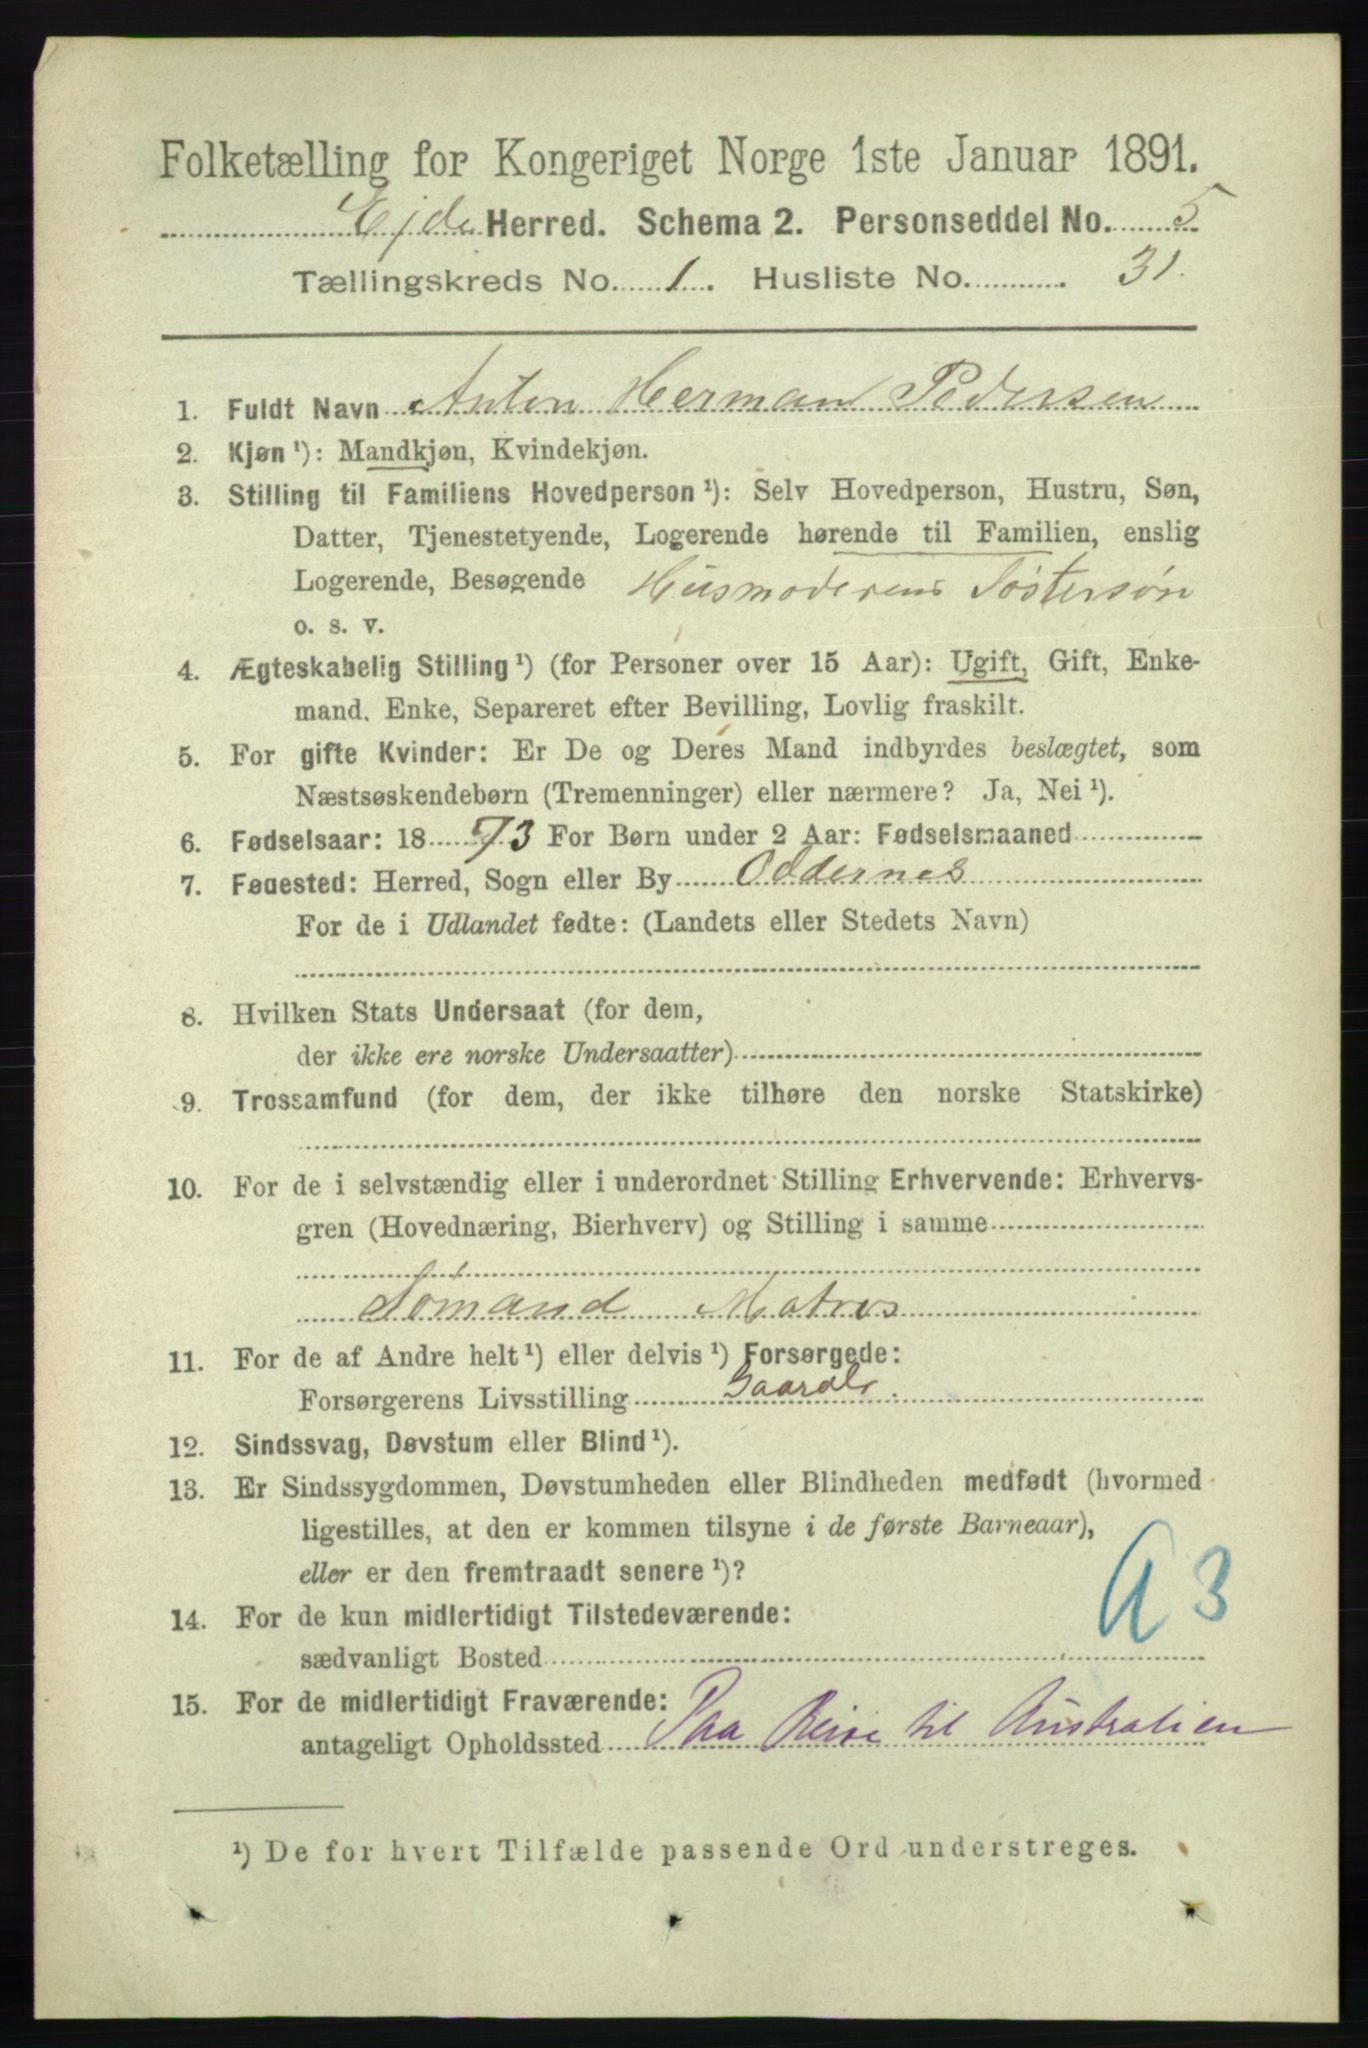 Folketælling for Kongeriget Norge 1ste Januar 1891.
Ejde Herred. Schema 2. Personseddel No. 5
Tællingskreds No. 1. Husliste No. 31.
1. Fuldt Navn Anton Herman Pedersen
2. Kjøn ¹): Mandkjøn, Kvindekjøn.
3. Stilling til Familiens Hovedperson ¹): Selv Hovedperson, Hustru, Søn,
Datter, Tjenestetyende, Logerende hørende til Familien, enslig
Logerende, Besøgende Husmoderens Søstersøn
o. s. v.
4. Ægteskabelig Stilling ¹) (for Personer over 15 Aar): Ugift, Gift, Enke-
mand. Enke, Separeret efter Bevilling, Lovlig fraskilt.
5. For gifte Kvinder: Er De og Deres Mand indbyrdes beslægtet, som
Næstsøskendebørn (Tremenninger) eller nærmere? Ja, Nei ¹).
6. Fødselsaar: 18 73 For Børn under 2 Aar: Fødselsmaaned
7. Føuested: Herred, Sogn eller By Oddernes
For de i Udlandet fødte: (Landets eller Stedets Navn)
8. Hvilken Stats Undersaat (for dem,
der ikke ere norske Undersaatter)
9. Trossamfund (for dem, der ikke tilhøre den norske Statskirke)
10. For de i selvstændig eller i underordnet Stilling Erhvervende: Erhvervs-
gren (Hovednæring, Bierhverv) og Stilling i samme
Sømand Matros
11. For de af Andre helt ¹) eller delvis ¹) Forsørgede:
Forsørgerens Livsstilling Gaardb.
12. Sindssvag, Døvstum eller Blind ¹).
13. Er Sindssygdommen, Døvstumheden eller Blindheden medfødt (hvormed
ligestilles, at den er kommen tilsyne i de første Barneaar),
eller er den fremtraadt senere ¹)?
A 3
14. For de kun midlertidigt Tilstedeværende:
sædvanligt Bosted
15. For de midlertidigt Fraværende:
antageligt Opholdssted Paa Reise til Australien
¹) De for hvert Tilfælde passende Ord understreges.